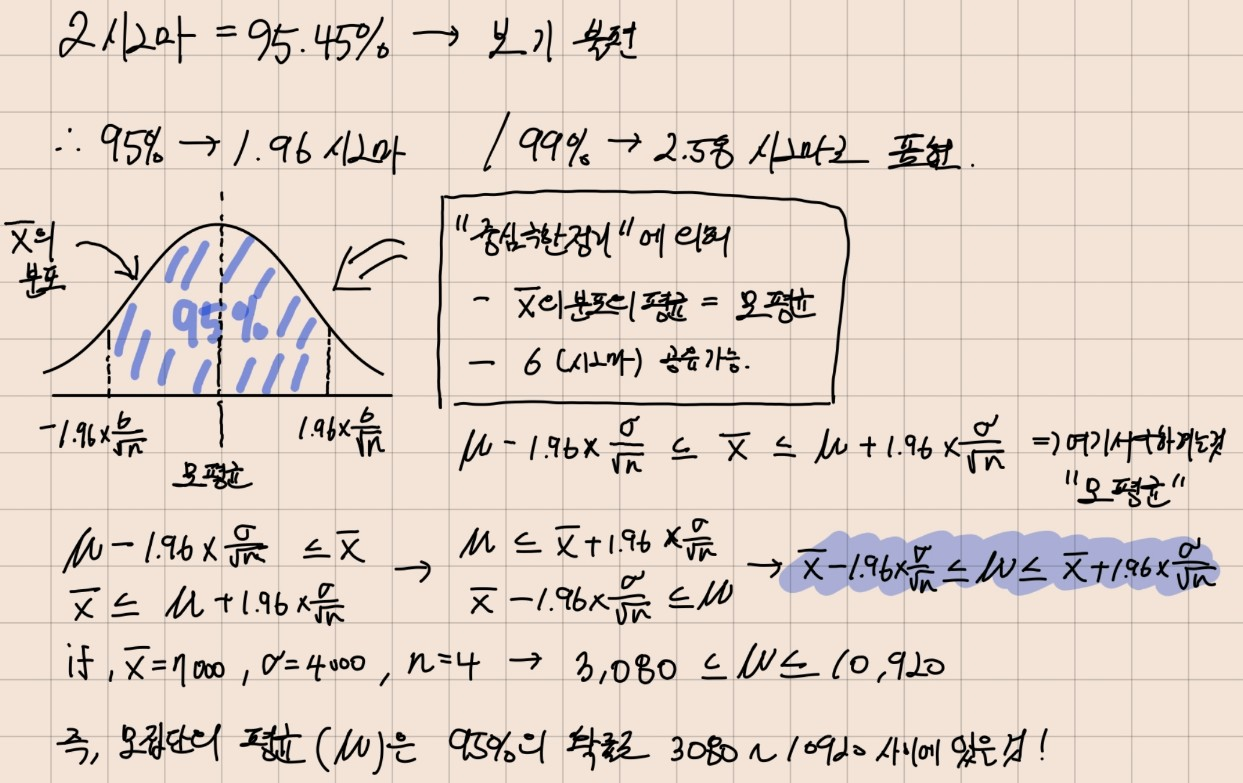 2시그마 = 95.45% → 보기 불편
∴ 95% → 1.96 시그마 / 99% → 2.58 시그마로 표현.
X̄의 분포
95%
-1.96×σ/√n
모평균
1.96×σ/√n
"중심극한정리"에 의해
- X̄의 분포의 평균 = 모평균
- σ (시그마) 공유가능.
μ - 1.96×σ/√n ≤ X̄ ≤ μ + 1.96×σ/√n ⇒ 여기서 구하려는것
"모평균"
μ - 1.96×σ/√n ≤ X̄ → μ ≤ X̄ + 1.96×σ/√n → X̄ - 1.96×σ/√n ≤ μ ≤ X̄ + 1.96×σ/√n
X̄ ≤ μ + 1.96×σ/√n X̄ - 1.96×σ/√n ≤ μ
if, X̄=7000, σ=4000, n=4 → 3,080 ≤ μ ≤ 10,920
즉, 모집단의 평균(μ)은 95%의 확률로 3080~10920 사이에 있는 것!